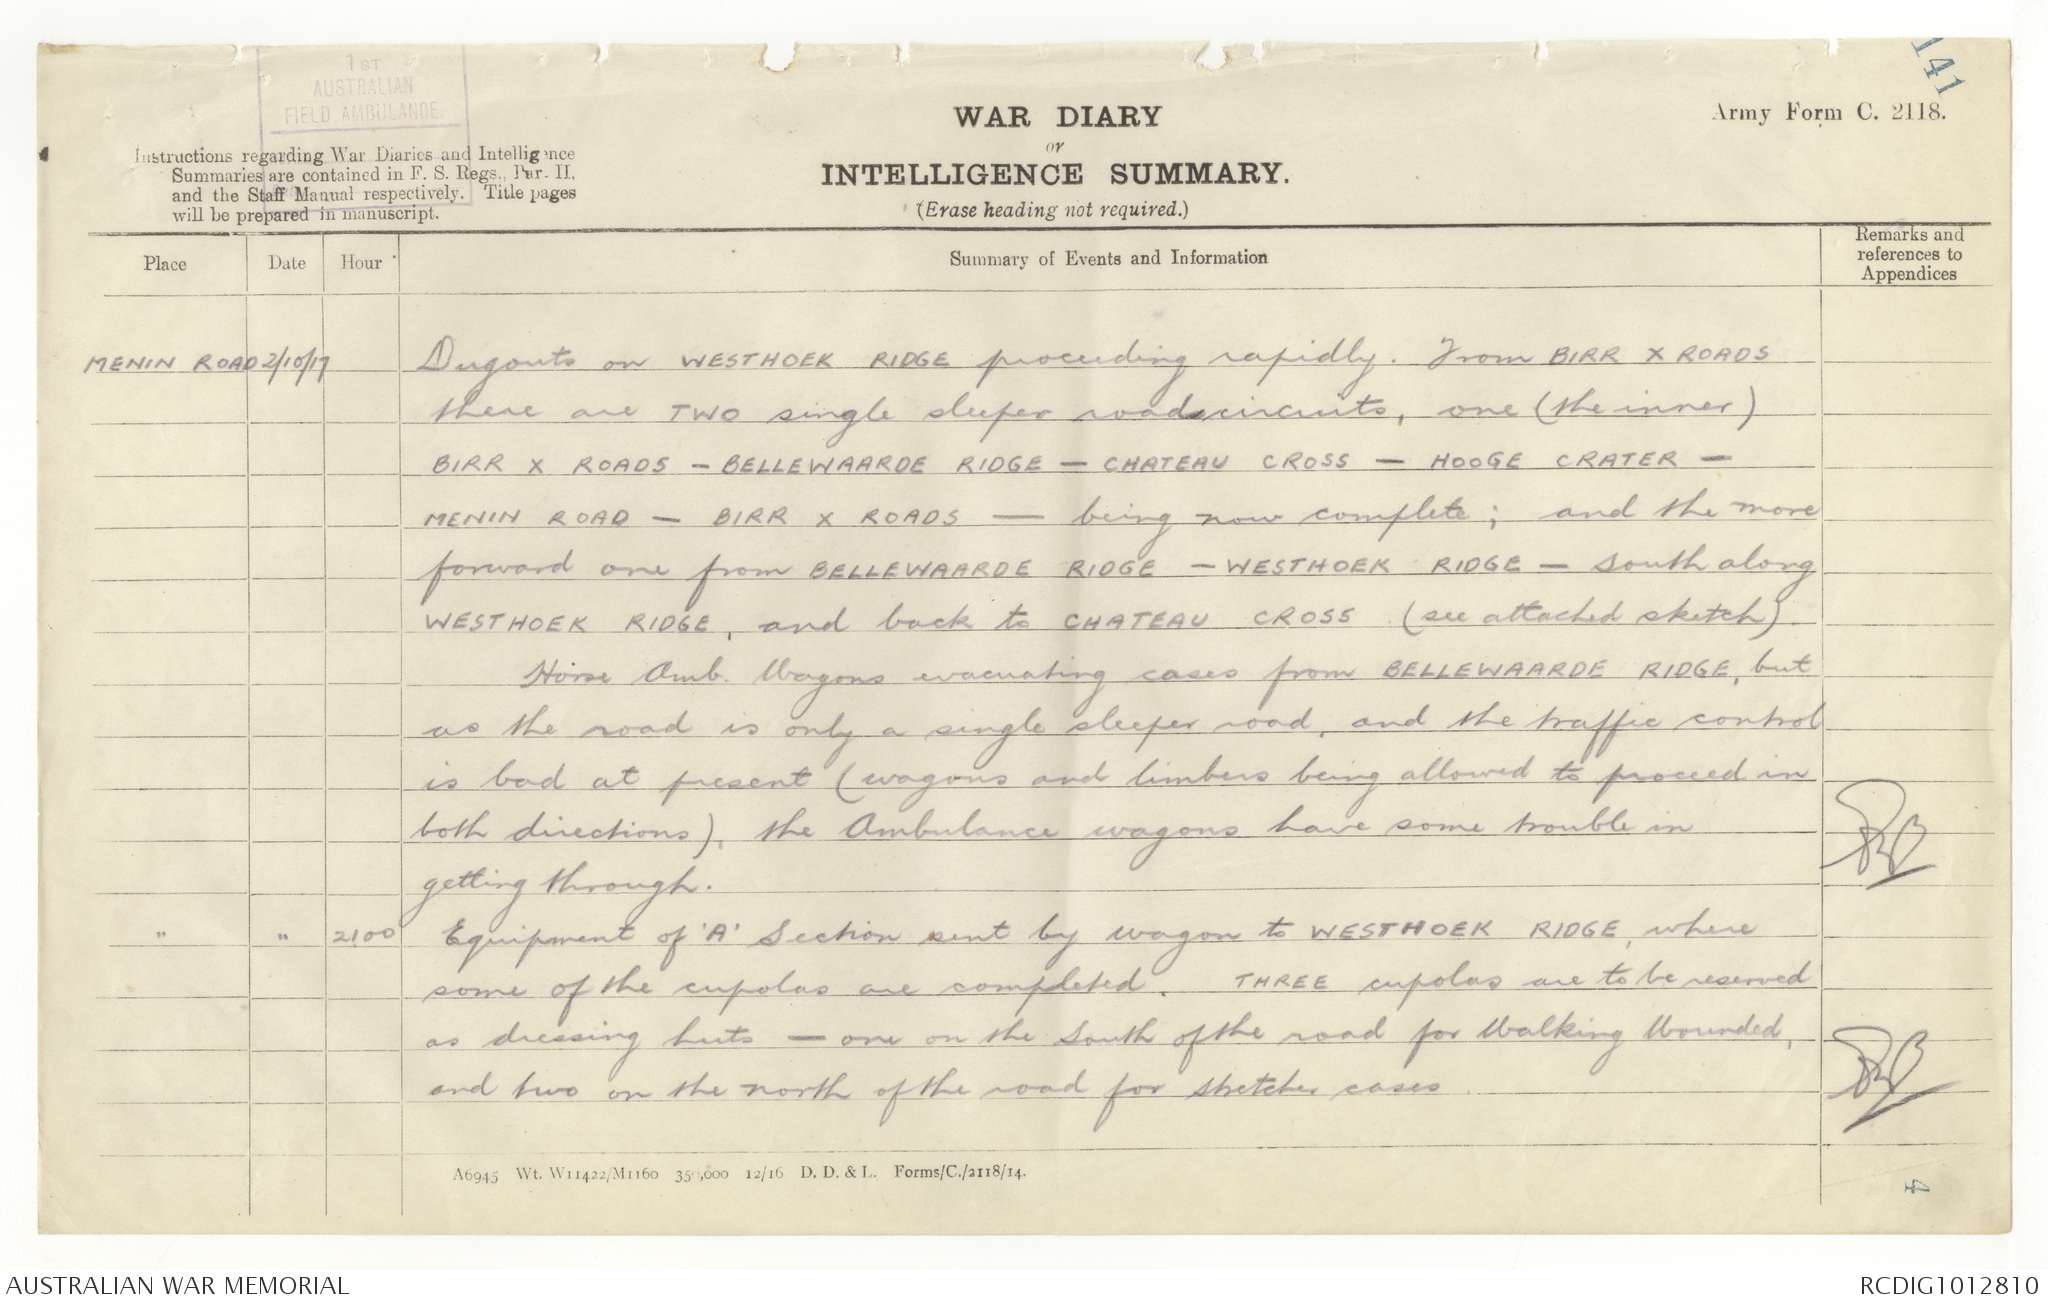 141
1ST
AUSTRALIAN
FIELD AMBULANCE.
Army Form C. 2118.
WAR DIARY
or
INTELLIGENCE SUMMARY.
(Erase heading not required.)
Instructions regarding War Diaries and Intelligence
Summaries are contained in F. S. Regs., Part II.
and the Staff Manual respectively. Title pages
will be prepared in manuscript.
Place Date Hour Summary of Events and Information Remarks and
references to
Appendices
MENIN ROAD 2/10/17 Dugouts on WESTHOEK RIDGE proceeding rapidly. From BIRR X ROADS
there are TWO single sleeper road circuits, one (the inner)
BIRR X ROADS - BELLEWAARDE RIDGE - CHATEAU CROSS - HOOGE CRATER -
MENIN ROAD - BIRR X ROADS - being now complete; and the more
forward one from BELLEWAARDE RIDGE - WESTHOEK RIDGE - South along
WESTHOEK RIDGE, and back to CHATEAU CROSS (see attached sketch).
Horse Amb. Wagons evacuating cases from BELLEWAARDE RIDGE, but
as the road is only a single sleeper road, and the traffic control
is bad at present (wagons and limbers being allowed to proceed in
both directions), the Ambulance wagons have some trouble in
getting through.
" " 2100 Equipment of 'A' Section sent by wagon to WESTHOEK RIDGE, where
some of the cupolas are completed. THREE cupolas are to be reserved
as dressing huts - one on the South of the road for Walking Wounded,
and two on the north of the road for stretcher cases
A6945 Wt. W11422/M1160 350,000 12/16 D. D. & L. Forms/C./2118/14.
4
AUSTRALIAN WAR MEMORIAL
RCDIG1012810